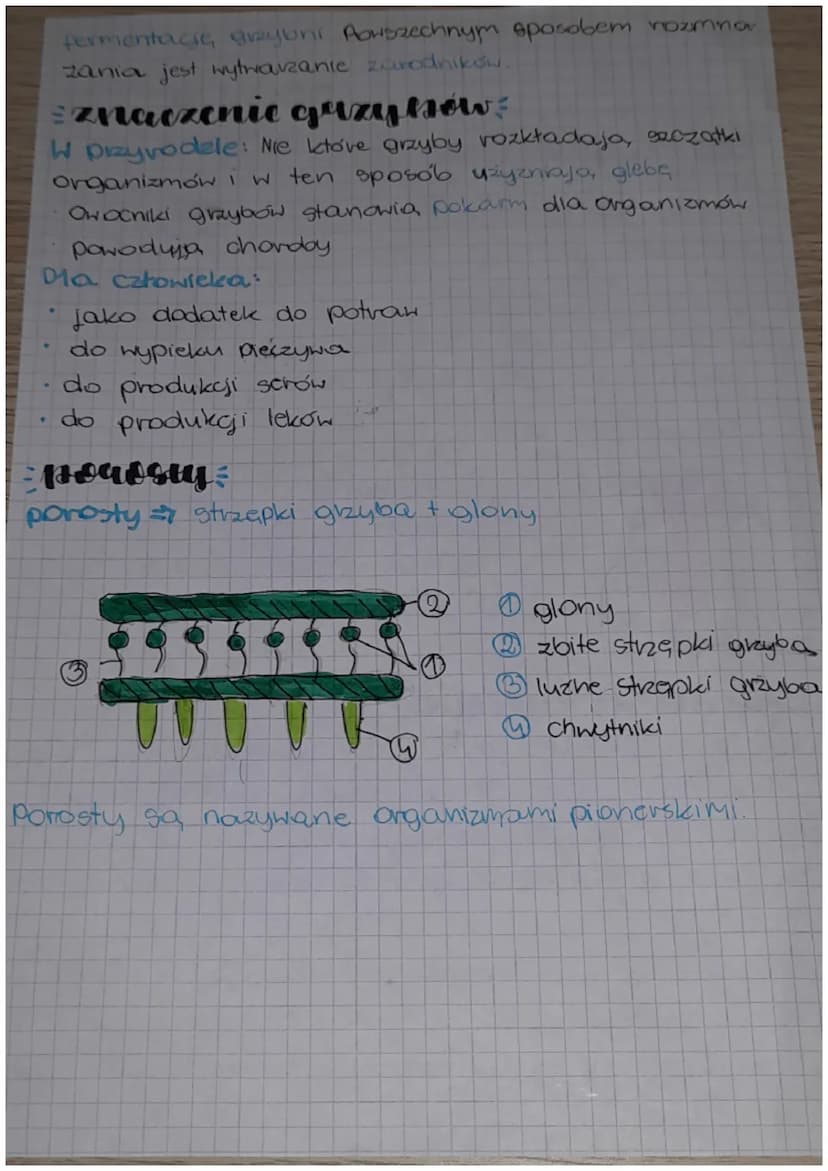 fermentację, grzybni Powszechnym sposobem rozmna
żania jest wytwarzanie zarodników.
znaczenie grzybów
W przyrodzie: Nie które grzyby rozkładają szczątki
organizmów i w ten sposób użyźniają glebę
· Owocniki grzybów stanowią pokarm dla organizmów
· powodują choroby
Dla człowieka:
· jako dodatek do potraw
· do wypieku pieczywa
· do produkcji serów
· do produkcji leków
porosty
porosty ⇒ strzępki grzyba + glony
2
3
1
4
1 glony
2 zbite strzępki grzyba
3 luźne strzępki grzyba
4 chwytniki
Porosty są nazywane organizmami pionerskimi.